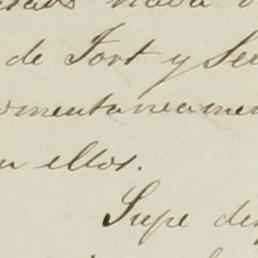 nada
de Fort y Se
omentaneamen
n ellos.
Supe de